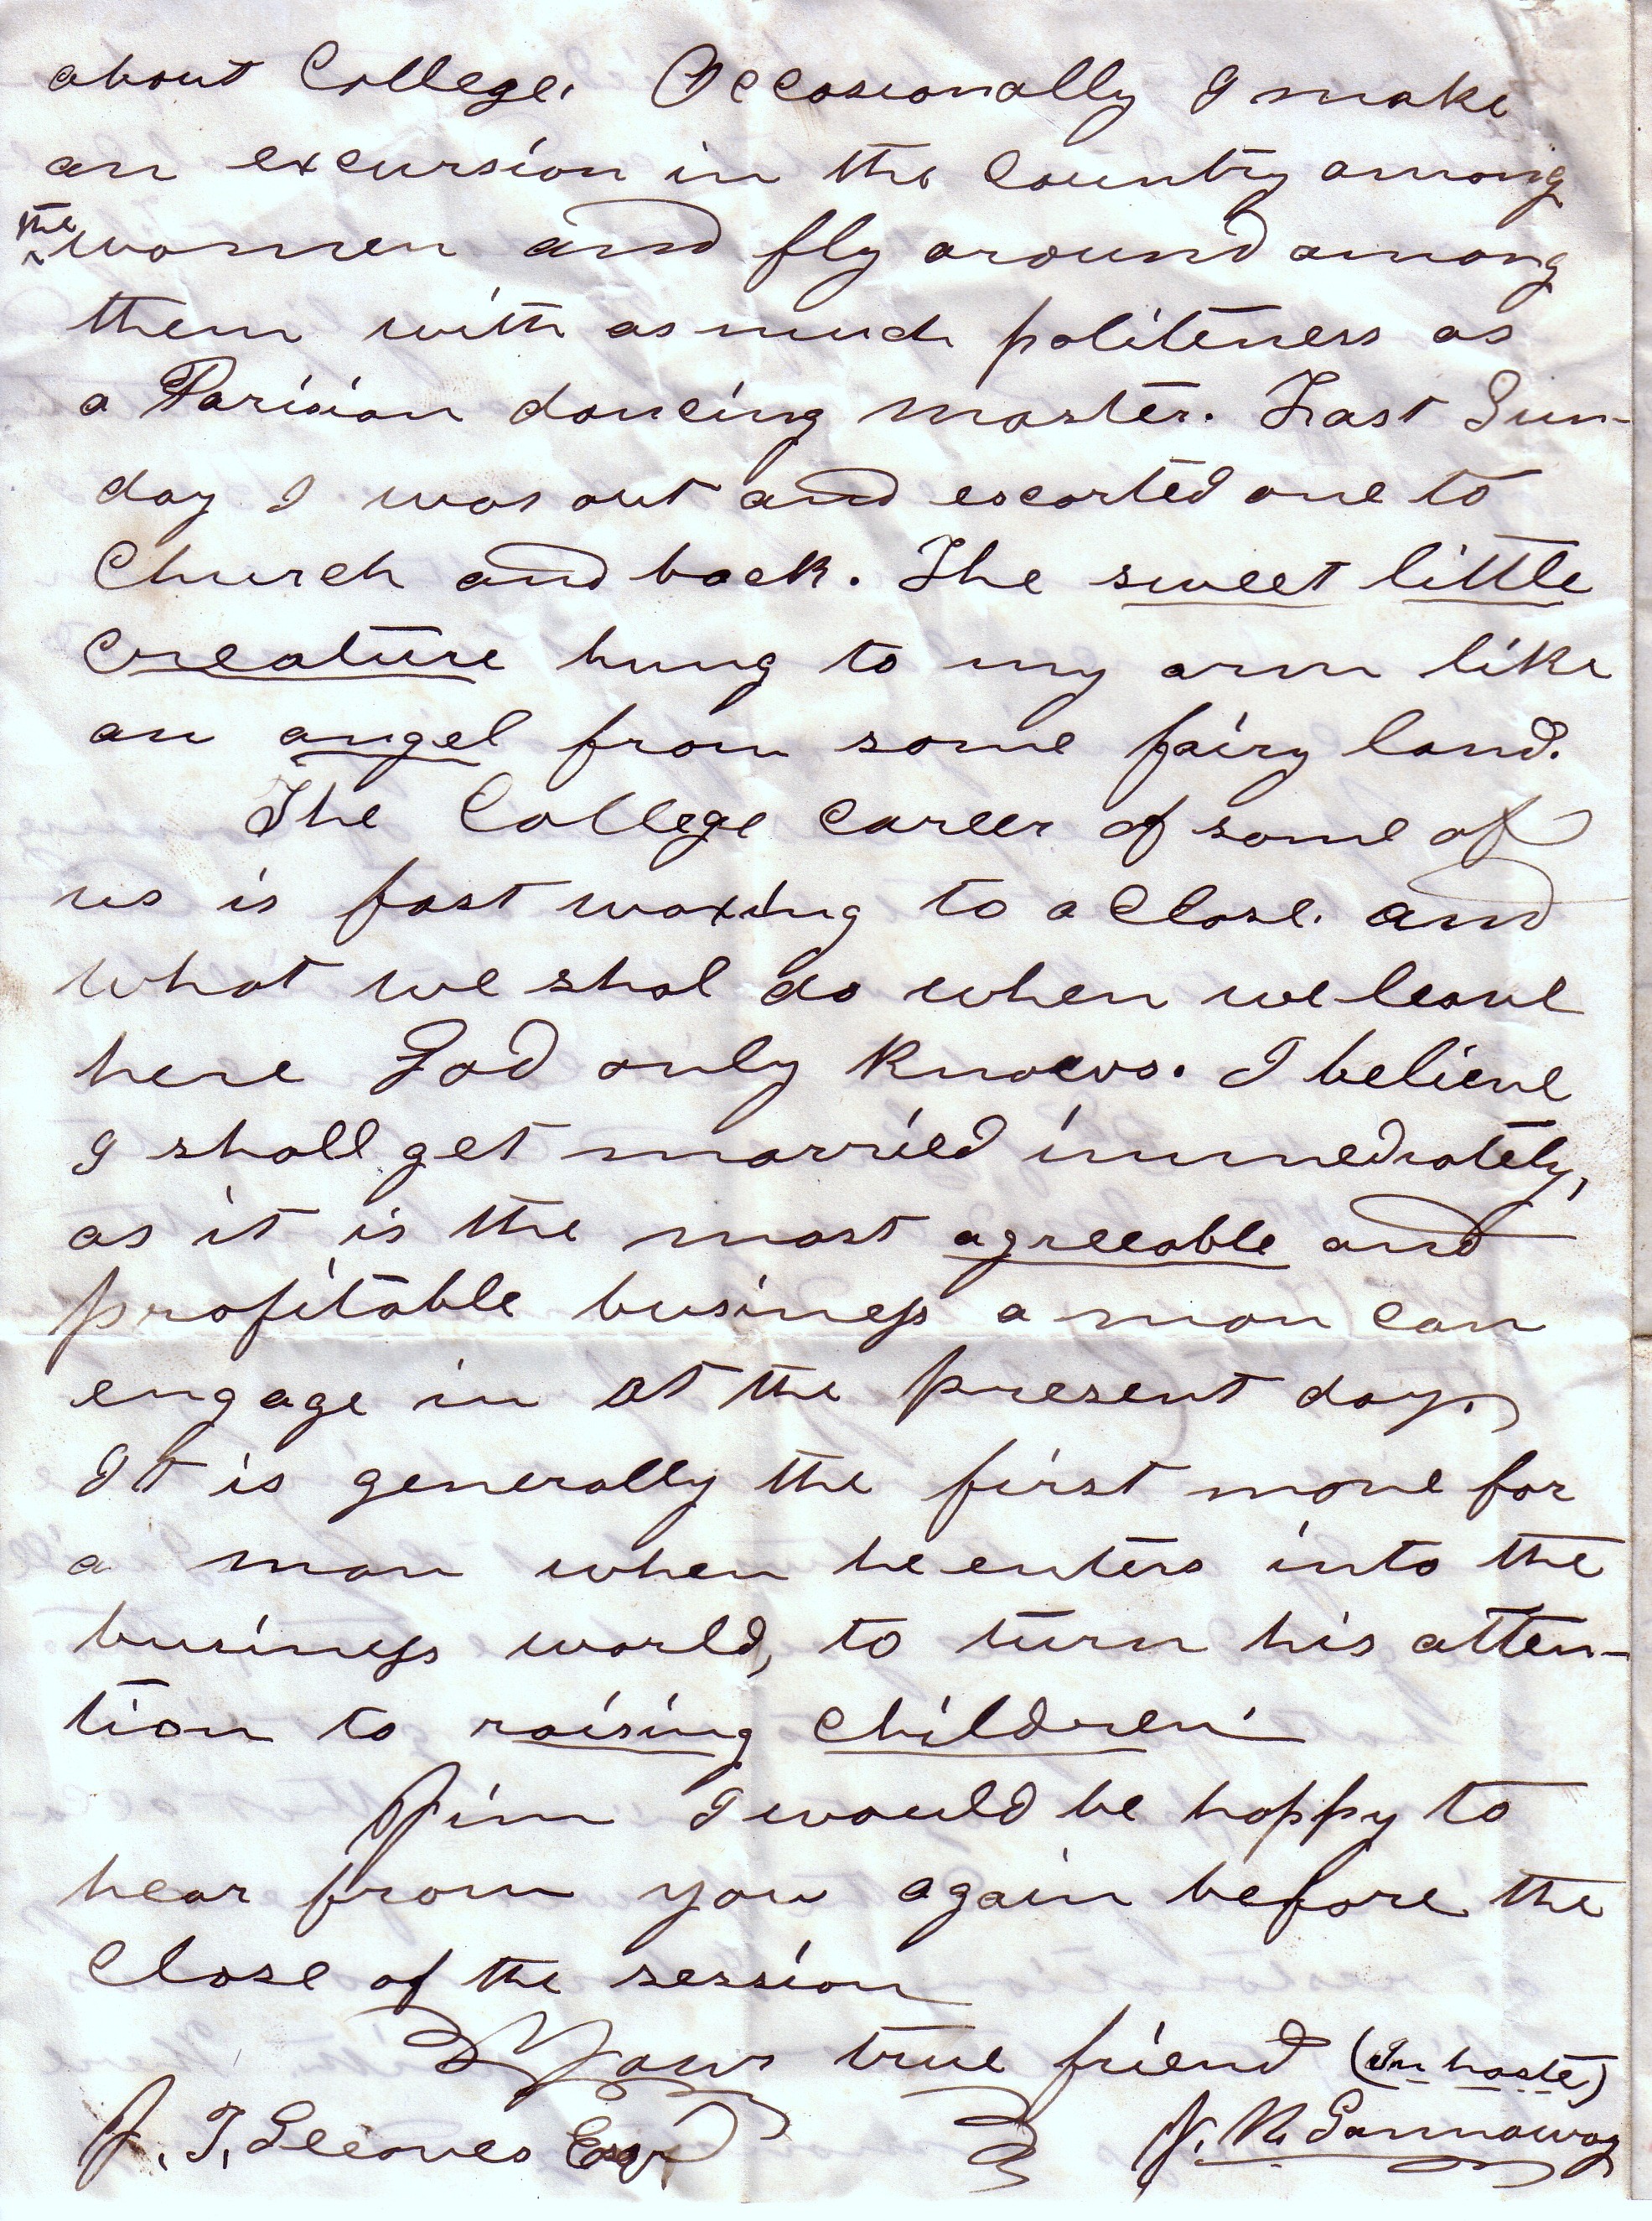 about College. Occasionally I make
an excursion in the Country among
the women and fly around among
them with as much politeness as
a Parisian dancing master. Last Sun-
day I was out and escorted one to
Church and back. The sweet little
creature hung to my arm like
an angel from some fairy land.
The College career of some of
us is fast waxing to a close. and
what we shal do when we leave
here God only knows. I believe
I shall get married immediately,
as it is the most agreeable and
profitable business a man can
engage in at the present day.
It is generally the first move for
a man when he enters into the
business world, to turn his atten-
tion to raising children.
Jim I would be happy to
hear from you again before the
Close of the session
Your true friend (In haste)
J. T. Gleaves Esqr J. R. Gannaway